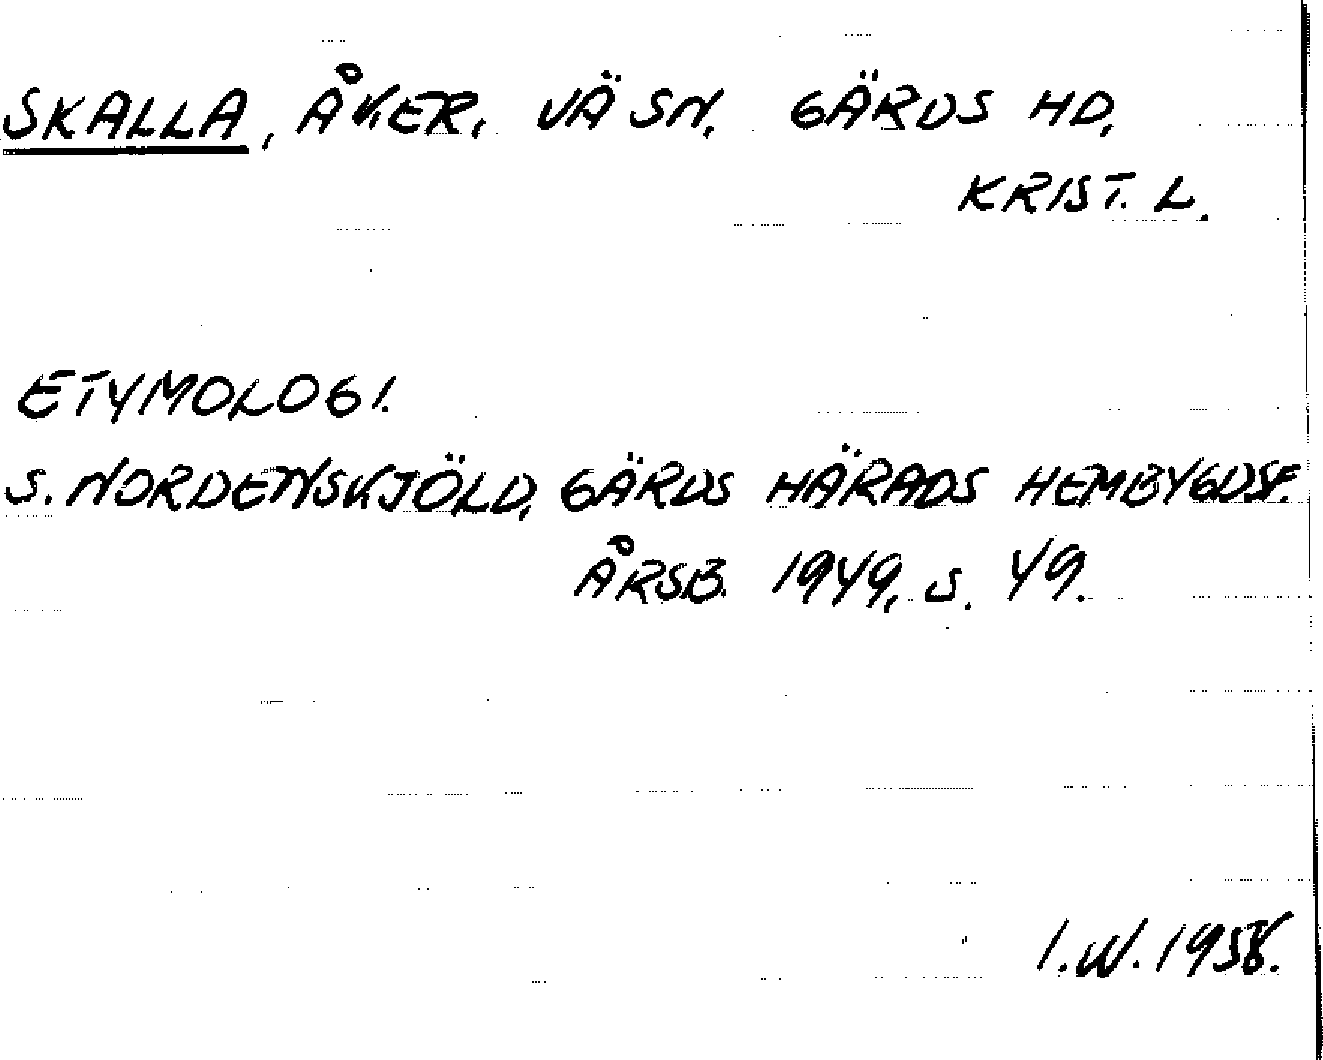 SKALLA, ÅKER, VÄ SN, GÄRDS HD,
KRIST. L.
ETYMOLOGI.
S. NORDENSKJÖLD, GÄRDS HÄRADS HEMBYGDSF.
ÅRSB. 1949, S. 49.
I.W. 1958.